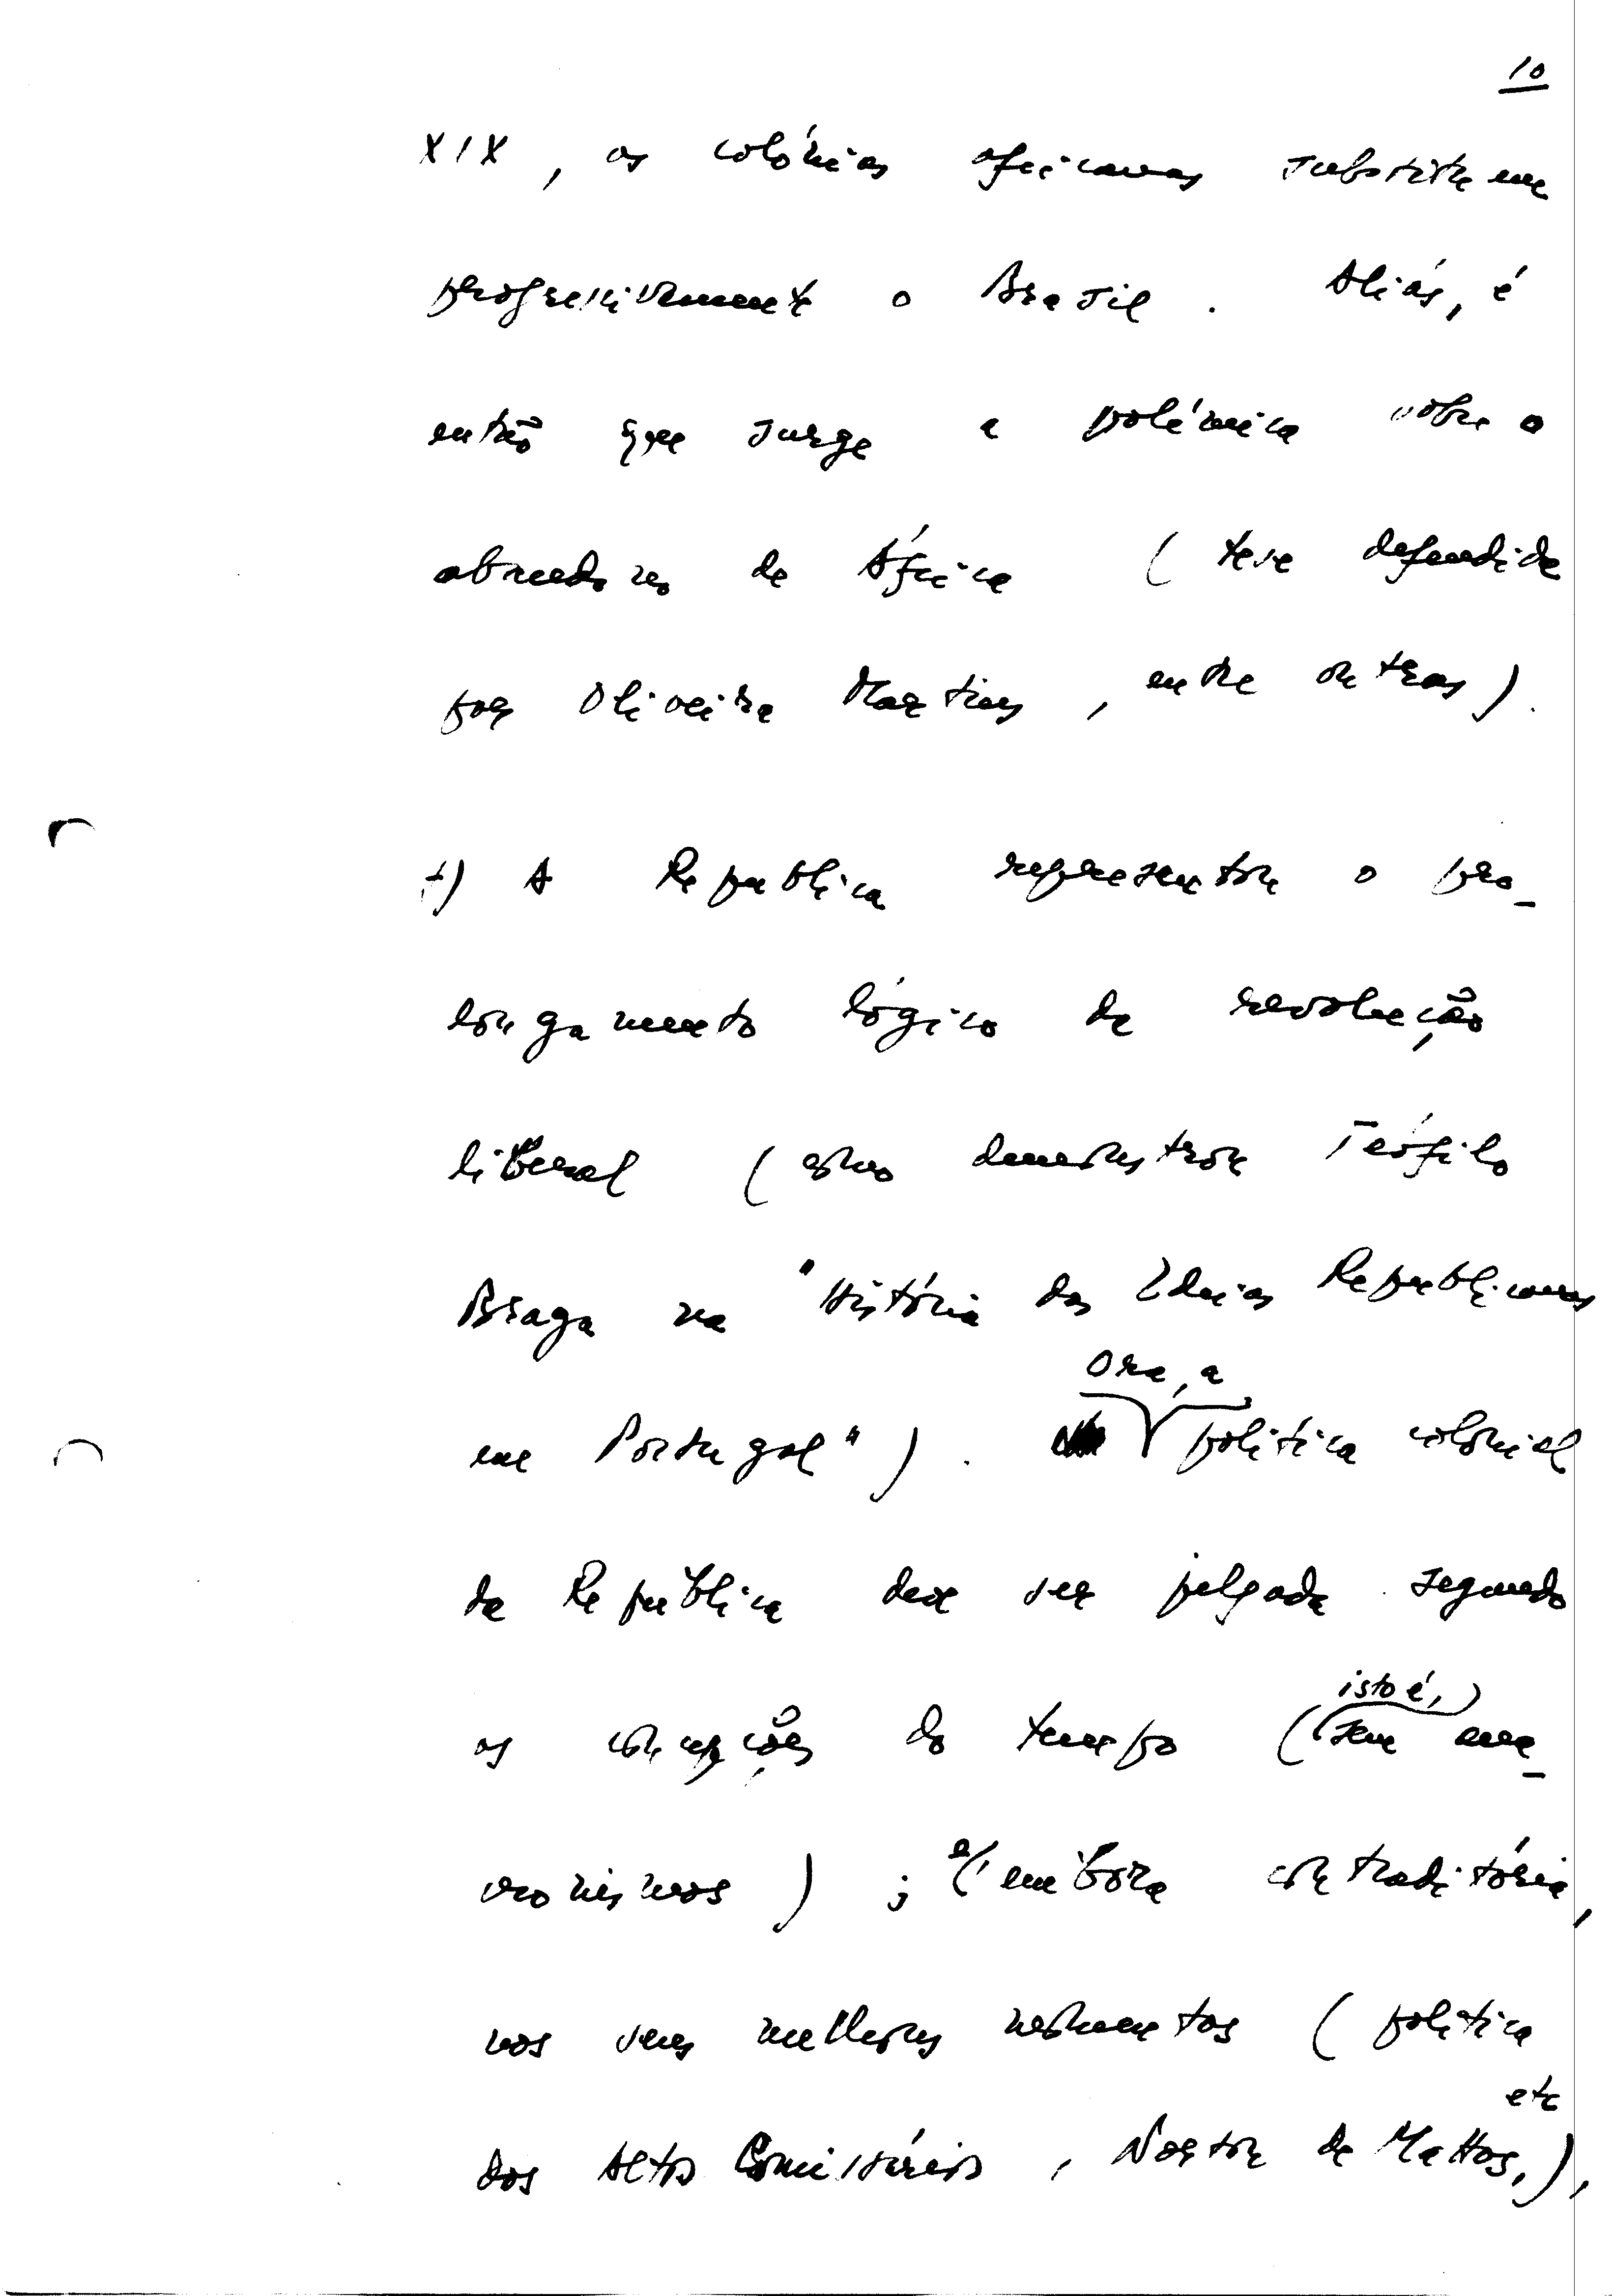 10
XIX, as colónias africanas substituem
progressivamente o Brasil. Aliás, é
então que surge a polémica sobre o
abandono da África (tese defendida
por Oliveira Martins, entre outros).
f) A Republica representou o pro-
longamento lógico da revolução
liberal (como demonstrou Teófilo
Braga na "História das Ideias Republicanas
em Portugal"). Ora, a política colonial
da República deve ser julgada segundo
as concepções do tempo (isto é, sem ana-
cronismos); e, embora contraditória,
nos seus melhores momentos (política
dos Altos Comissários, Norton de Mattos, etc),